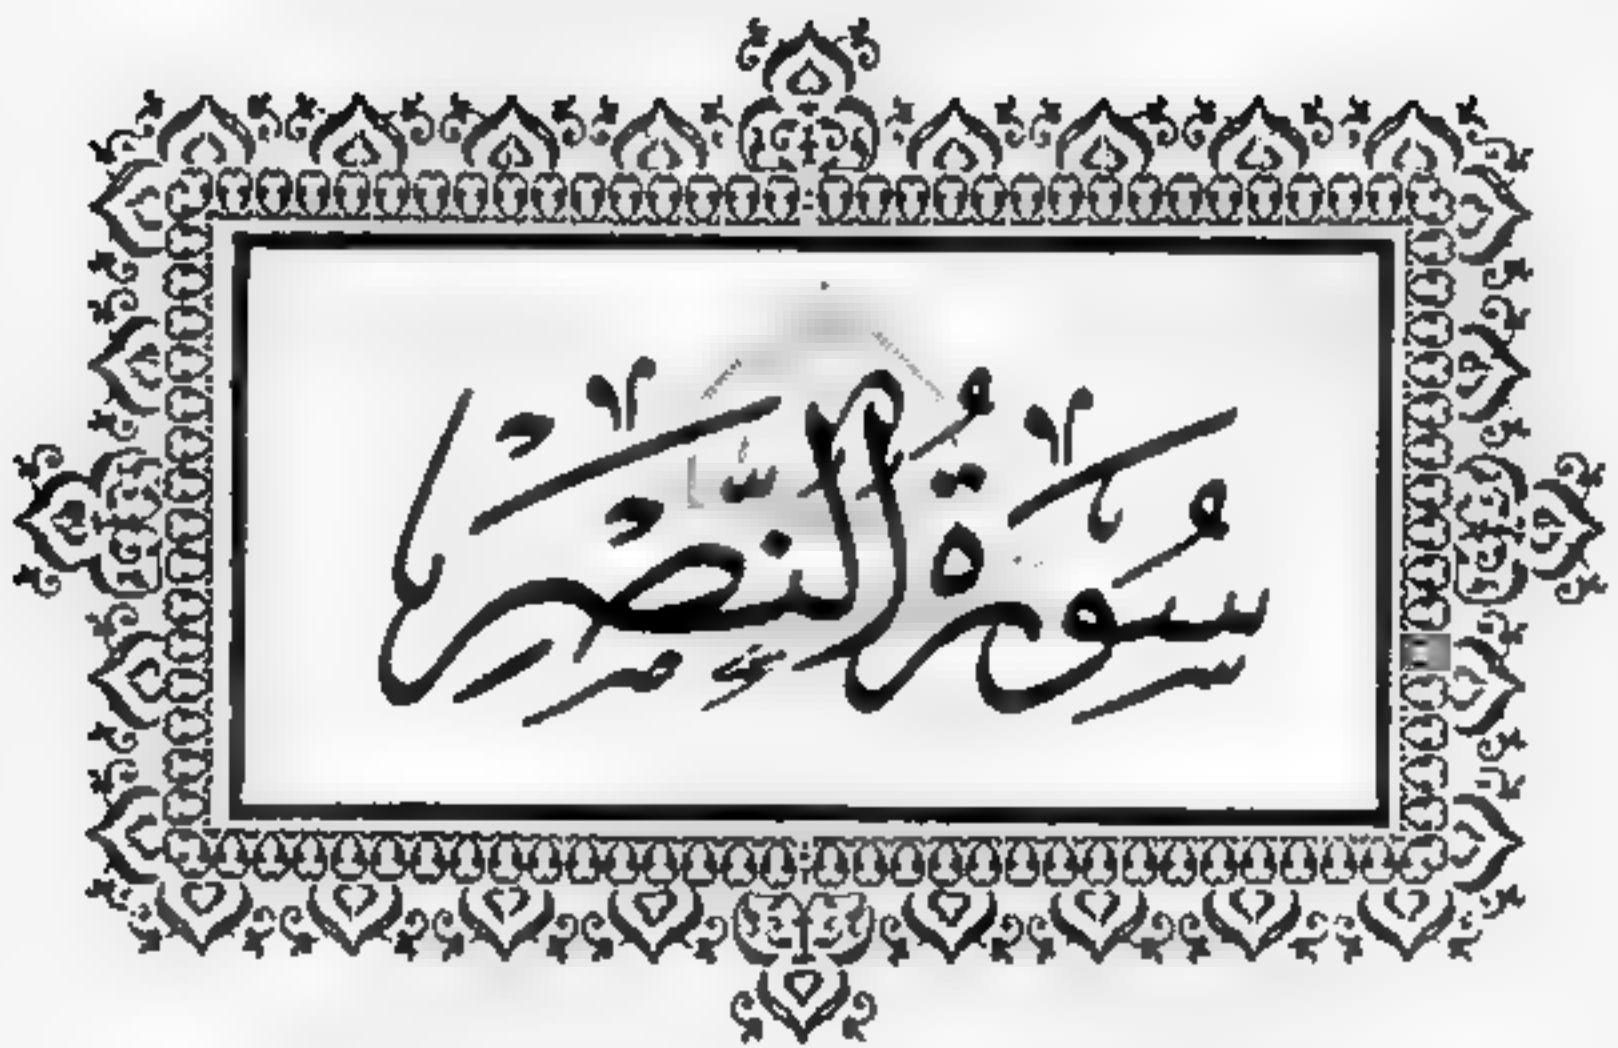 سُورَةُ النَّصْرِ